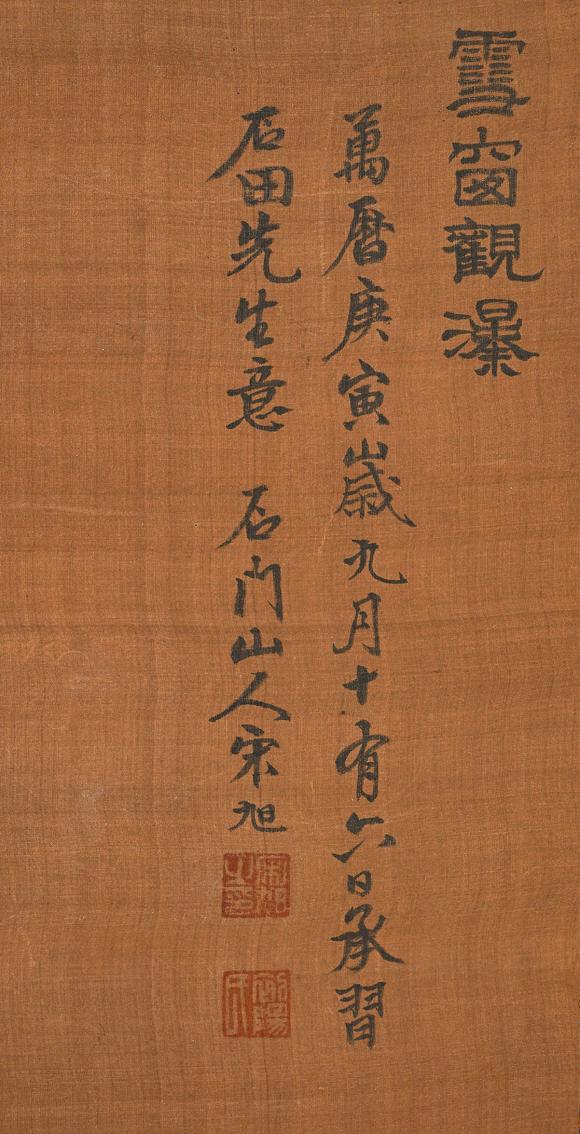 雪窗觀瀑
萬曆庚寅歲九月十有六日承習
石田先生意 石門山人宋旭
宋旭之印